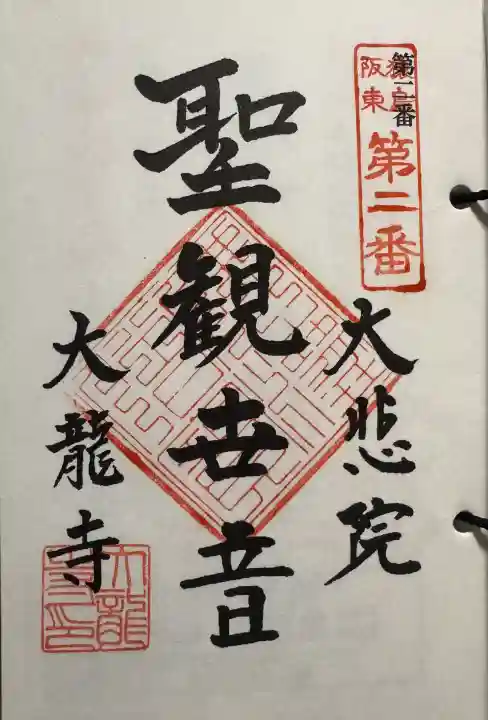 猿島
阪東
第二番
第二番
大悲院
聖観世音
大龍寺
大龍
寺印